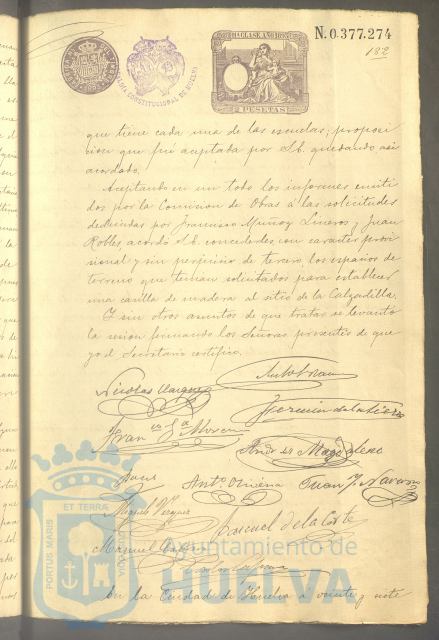 N. 0.377.274
182
11ª CLASE AÑO 1893
2 PESETAS
ALCALDÍA CONSTITUCIONAL DE HUELVA
que tiene cada una de las escuelas; proposi
cion que fué aceptada por S.E. quedando asi
acordado.
Aceptando en un todo los informes emiti
dos por la Comision de Obras á las solicitudes
deducidas por Francisco Muñoz Lineros y Juan
Robles, acordó S.E. concederles, con caracter provi
sional y sin perjuicio de tercero, los espacios de
terreno que tenian solicitados para establecer
una casilla de madera al sitio de la Calzadilla.
Y sin otros asuntos de que tratar se levantó
la sesion firmando los Señores presentes de que
yo el Secretario certifico.
Nicolas Vazquez
Fermin de la Sierra
Fran.co Gª Morena
Magdaleno
Antº Oliveira Juan P. Navarro
Miguel Vazquez
Manuel de la Corte
Manuel
PORTUS MARIS ET TERRÆ
Ayuntamiento de
HUELVA
En la Ciudad de Huelva a veinte y nueve